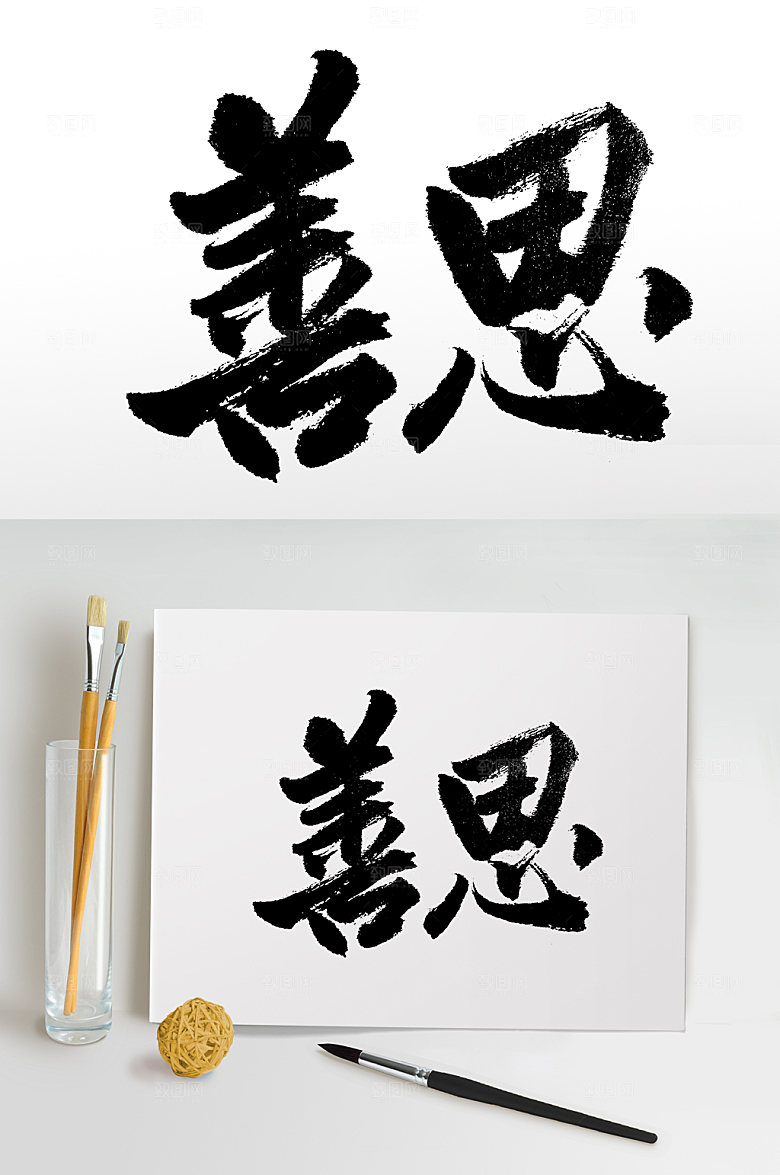 善思
善思